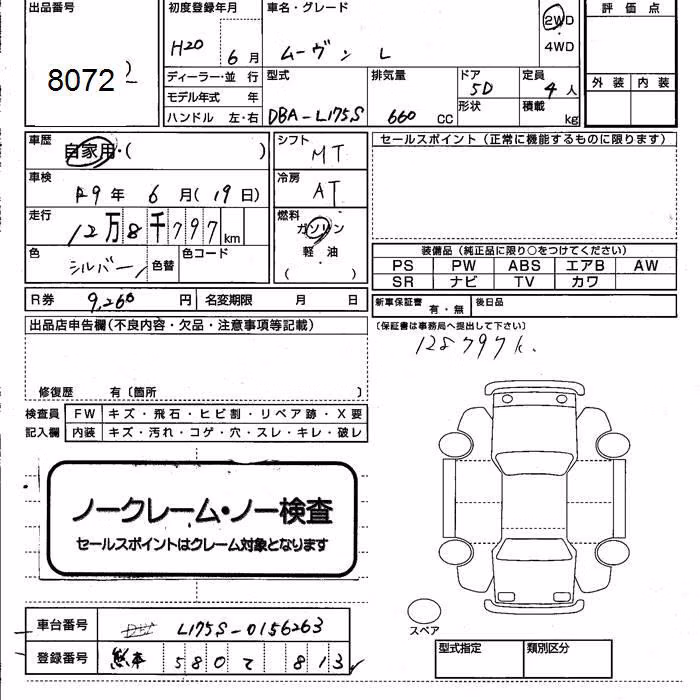 出品番号
8072
初度登録年月
H20 6月
車名・グレード
ムーヴン L
2WD
・
4WD
評価点
外装 内装
ディーラー・並 行
モデル年式 年
ハンドル 左・右
型式
DBA-L175S
排気量
660 CC
ドア
5D
形状
定員
4人
積載
kg
車歴
自家用・( )
車検
19年 6月(19日)
走行
12万8千797km
色
シルバー
色替
色コード
R券 9,260円
名変期限 月 日
シフト
MT
冷房
AT
燃料
ガソリン
軽・油
( )
セールスポイント(正常に機能するものに限ります)
装備品(純正品に限り○をつけてください)
PS PW ABS エアB AW
SR ナビ TV カワ
新車保証書 有・無
後日品
〔保証書は事務局へ提出して下さい〕
128797k.
出品店申告欄(不良内容・欠品・注意事項等記載)
修復歴 有〔箇所 〕
検査員 FW キズ・飛石・ヒビ割・リペア跡・X要
記入欄 内装 キズ・汚れ・コゲ・穴・スレ・キレ・破レ
ノークレーム・ノー検査
セールスポイントはクレーム対象となります
車台番号 L175S-0156263
登録番号 熊本 580 て 813
スペア
型式指定
類別区分